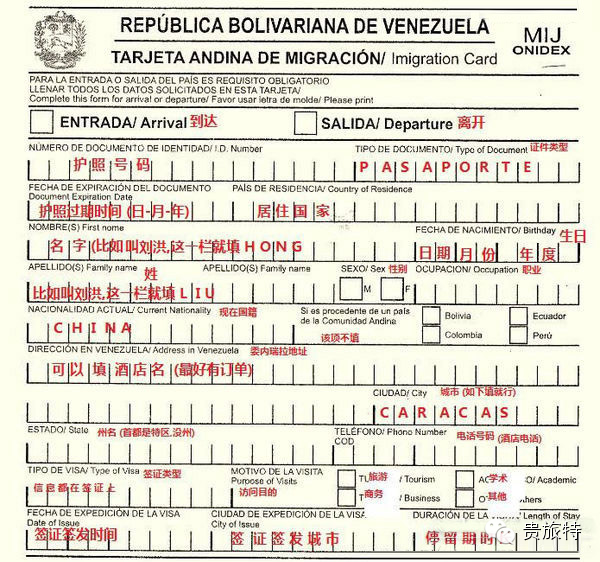 REPÚBLICA BOLIVARIANA DE VENEZUELA
MIJ
ONIDEX
TARJETA ANDINA DE MIGRACIÓN/ Imigration Card
PARA LA ENTRADA O SALIDA DEL PAÍS ES REQUISITO OBLIGATORIO
LLENAR TODOS LOS DATOS SOLICITADOS EN ESTA TARJETA/
Complete this form for arrival or departure/ Favor usar letra de molde/ Please print
ENTRADA/ Arrival 到达 SALIDA/ Departure 离开
NÚMERO DE DOCUMENTO DE IDENTIDAD/ I.D. Number TIPO DE DOCUMENTO/ Type of Document 证件类型
护照号码 PASAPORTE
FECHA DE EXPIRACIÓN DEL DOCUMENTO PAÍS DE RESIDENCIA/ Country of Residence
Document Expiration Date
护照过期时间 (日-月-年) 居住国家
NOMBRE(S) First name FECHA DE NACIMIENTO/ Birthday 生日
名字(比如叫刘洪,这一栏就填HONG 日期月份 年度
APELLIDO(S) Family name 姓 APELLIDO(S) Family name SEXO/ Sex 性别 OCUPACION/ Occupation 职业
比如叫刘洪,这一栏就填LIU M F
NACIONALIDAD ACTUAL/ Current Nationality 现在国籍 Si es procedente de un país
de la Comunidad Andina
该项不填
Bolivia Ecuador
Colombia Perú
CHINA
DIRECCIÓN EN VENEZUELA/ Address in Venezuela 委内瑞拉地址
可以填酒店名(最好有订单)
CIUDAD/ City 城市 (如下填就行)
CARACAS
ESTADO/ State 州名 (首都是特区,没州) TELÉFONO/ Phono Number 电话号码 (酒店电话)
COD
TIPO DE VISA/ Type of Visa 签证类型 MOTIVO DE LA VISITA
Purpose of Visits
信息都在签证上 访问目的
旅游 / Tourism 学术 / Academic
商务 / Business 其他 hers
FECHA DE EXPEDICIÓN DE LA VISA CIUDAD DE EXPEDICIÓN DE LA VISA DURACIÓN DE LA Length of Stay
Date of Issue City of Issue
签证签发时间 签证签发城市 停留期时
贵旅特